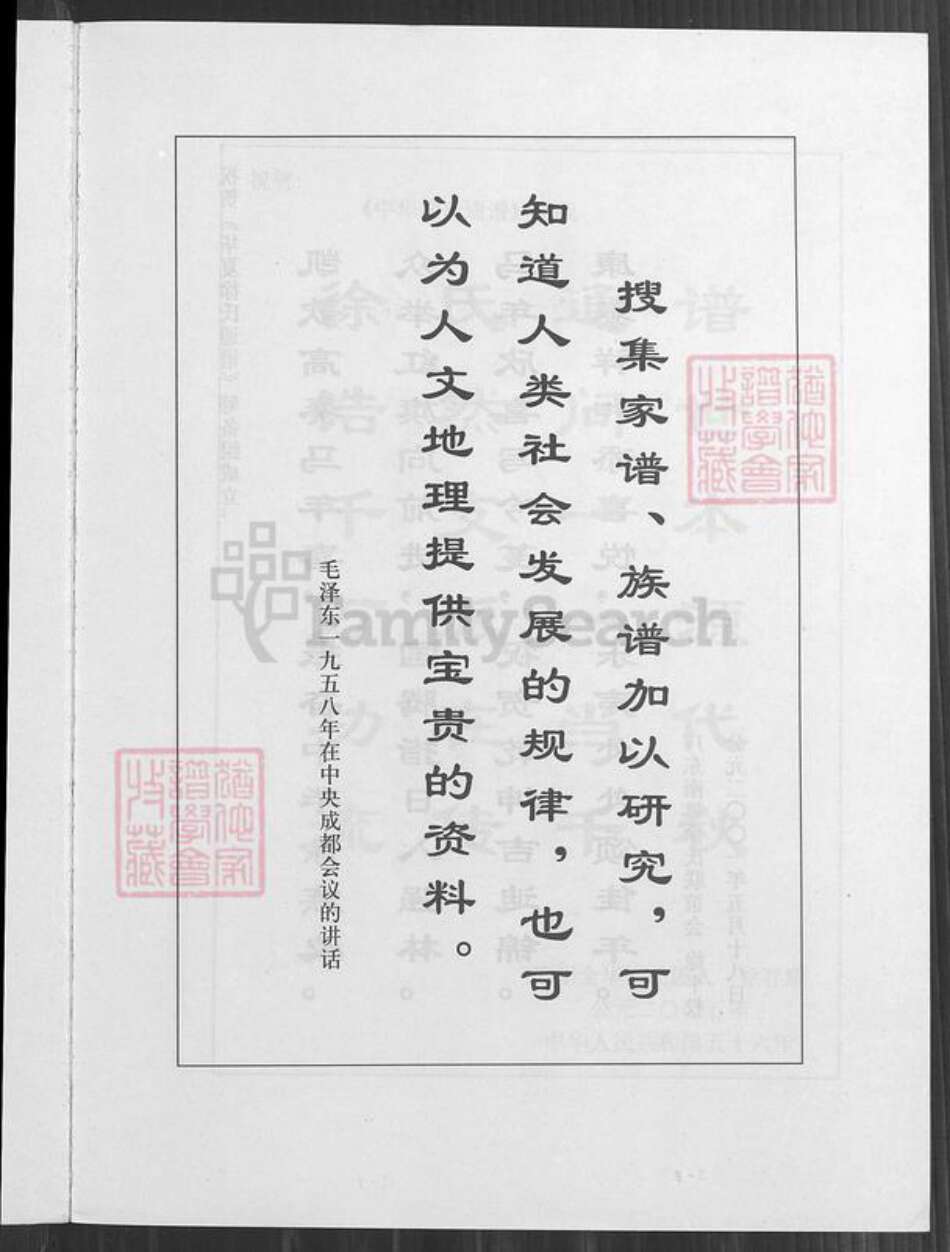 搜集家谱、族谱加以研究，可
知道人类社会发展的规律，也可
以为人文地理提供宝贵的资料。
毛泽东一九五八年在中央成都会议的讲话
FamilySearch
猶他家
譜學會
收藏
猶他家
譜學會
收藏